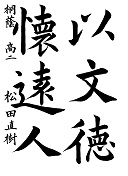 以文德
懷遠人
桐蔭 高二 松田直樹